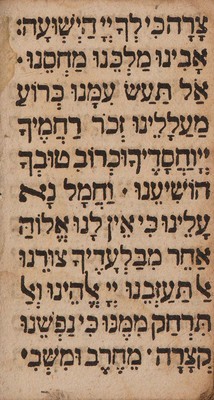 צָרָה כִּי לְךָ יְיָ הַיְשׁוּעָה:
אָבִינוּ מַלְכֵּנוּ מַחְסֵנוּ ·
אַל תַּעַשׂ עִמָּנוּ כְּרוֹעַ
מַעֲלָלֵינוּ זְכֹר רַחֲמֶיךָ
יְיָ וַחֲסָדֶיךָ וּכְרוֹב טוּבְךָ
הוֹשִׁיעֵנוּ · וַחֲמָל נָא
עָלֵינוּ כִּי אֵין לָנוּ אֱלוֹהַּ
אַחֵר מִבַּלְעָדֶיךָ צוּרֵנוּ
אַל תַּעַזְבֵנוּ יְיָ אֱלֹהֵינוּ וְאַל
תִּרְחַק מִמֶּנּוּ כִּי נַפְשֵׁנוּ
קְצָרָה · מֵחֶרֶב וּמִשְּׁבִי